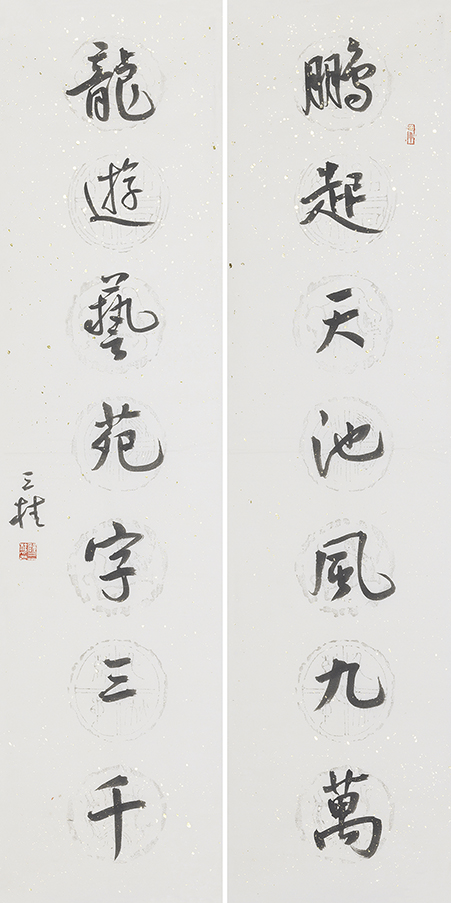 鵬起天池風九萬
龍遊藝苑字三千
三桂